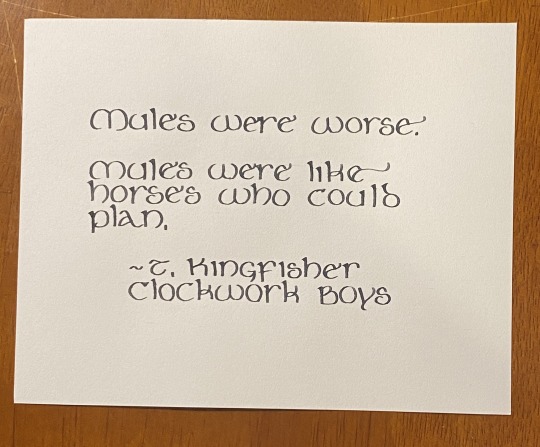 Mules were worse.
Mules were like
horses who could
plan.
~T. Kingfisher
Clockwork Boys